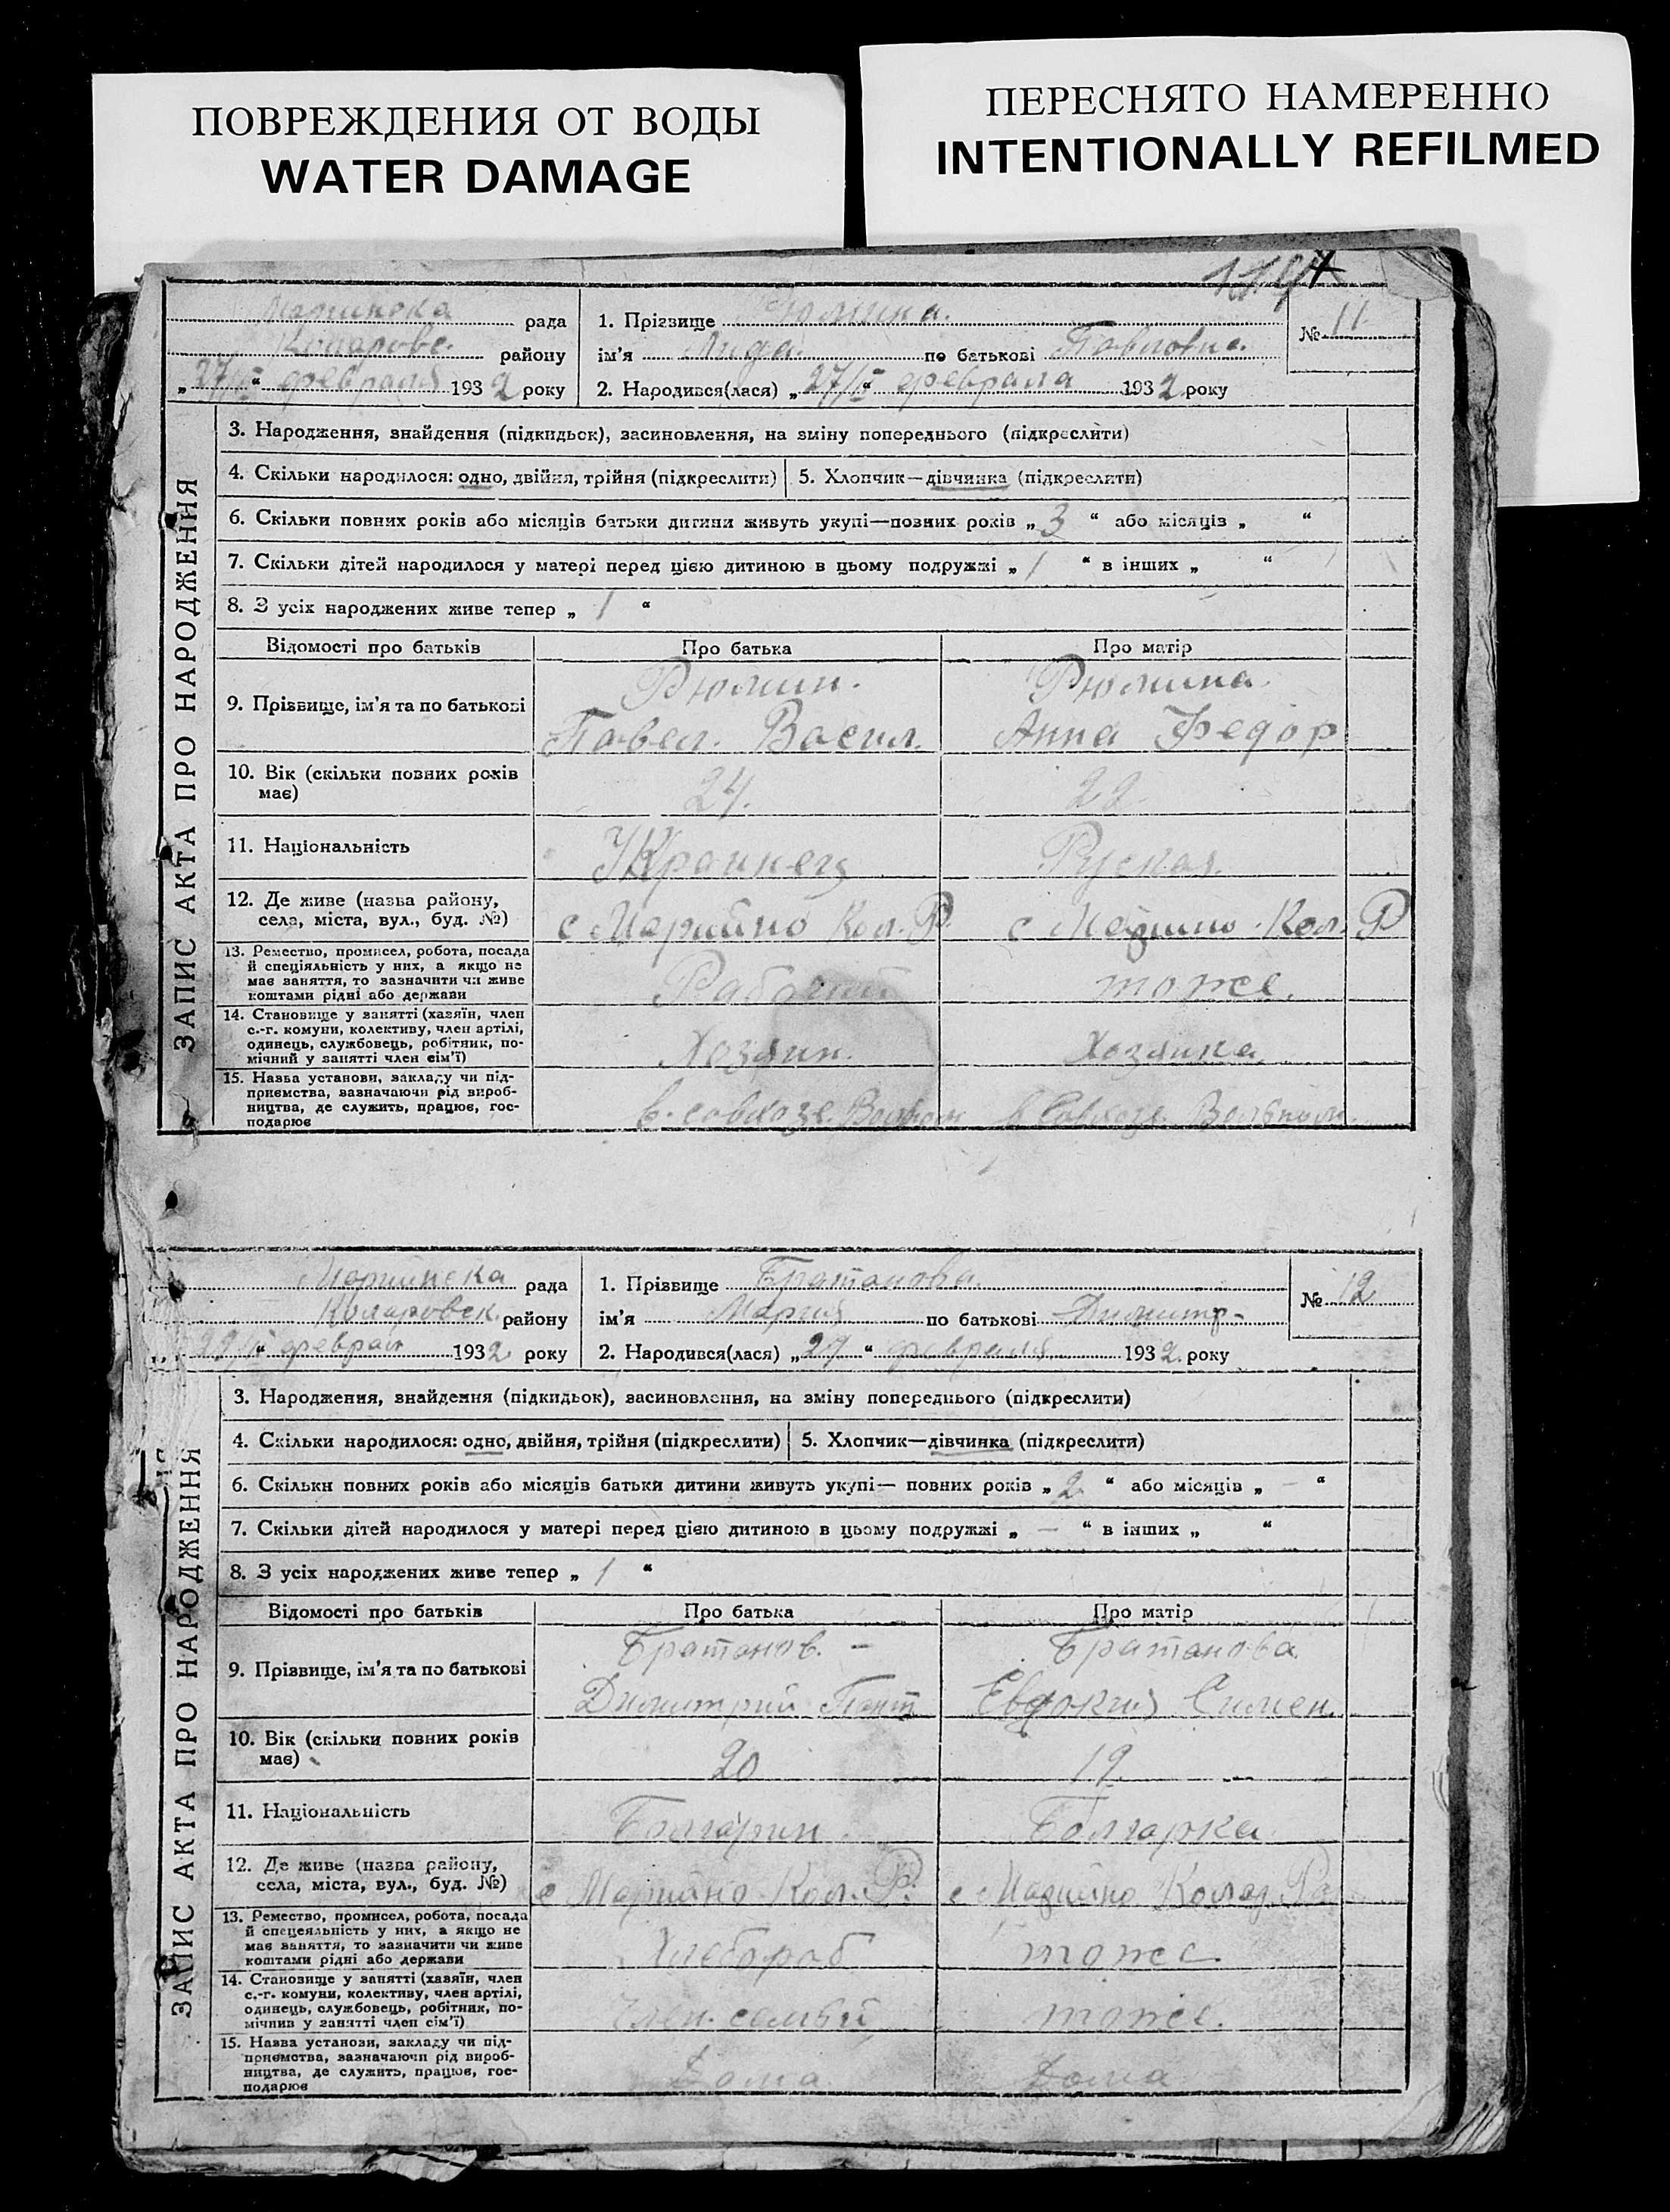 ПОВРЕЖДЕНИЯ ОТ ВОДЫ
WATER DAMAGE
ПЕРЕСНЯТО НАМЕРЕННО
INTENTIONALLY REFILMED
ЗАПИС АКТА ПРО НАРОДЖЕННЯ
рада
району
„27/II“ февраля 1932 року
1. Прізвище
ім'я Лида. по батькові Павловна.
2. Народився(лася) „27/II“ февраля 1932 року
№ 11
3. Народження, знайдення (підкидьок), засиновлення, на зміну попереднього (підкреслити)
4. Скільки народилося: одно, двійня, трійня (підкреслити)
5. Хлопчик—дівчинка (підкреслити)
6. Скільки повних років або місяців батьки дитини живуть укупі—повних років „3“ або місяців „ “
7. Скільки дітей народилося у матері перед цією дитиною в цьому подружжі „1“ в інших „ “
8. З усіх народжених живе тепер „1“
Відомості про батьків
Про батька
Про матір
9. Прізвище, ім'я та по батькові
Рюмин.
Павел. Васил.
Рюмина
Анна Федор
10. Вік (скільки повних років
має)
24.
22.
11. Національність
Украинец
Руская
12. Де живе (назва району,
села, міста, вул., буд. №)
с Марийно Кол. Р.
с Марийно Кол. Р
13. Ремество, промисел, робота, посада
й спеціяльність у них, а якщо не
має заняття, то зазначити чи живе
коштами рідні або держави
Рабочий
тоже.
14. Становище у занятті (хазяїн, член
с.-г. комуни, колективу, член артілі,
одинець, службовець, робітник, по-
мічний у занятті член сім'ї)
Хозяин.
Хозяйка
15. Назва установи, закладу чи під-
приємства, зазначаючи рід вироб-
ництва, де служить, працює, гос-
подарює
в. совхозе
в Совхозе
ЗАПИС АКТА ПРО НАРОДЖЕННЯ
Мариинска рада
Коларовск. району
феврал 1932 року
1. Прізвище Братанова.
ім'я Мария по батькові Димитр-
2. Народився(лася) „27“ февраля 1932. року
№ 12
3. Народження, знайдення (підкидьок), засиновлення, на зміну попереднього (підкреслити)
4. Скільки народилося: одно, двійня, трійня (підкреслити)
5. Хлопчик—дівчинка (підкреслити)
6. Скільки повних років або місяців батьки дитини живуть укупі— повних років „2“ або місяців „ – “
7. Скільки дітей народилося у матері перед цією дитиною в цьому подружжі „ — “ в інших „ “
8. З усіх народжених живе тепер „1“
Відомості про батьків
Про батька
Про матір
9. Прізвище, ім'я та по батькові
Братанов. –
Димитрий Пант
Братанова
Евдокия Симен.
10. Вік (скільки повних років
має)
20
19.
11. Національність
Болгарин
Болгарка
12. Де живе (назва району,
села, міста, вул., буд. №)
с Марийно Кол. Р.
с Марийно Колар. Ра
13. Ремество, промисел, робота, посада
й спецеяльність у них, а якщо не
має заняття, то зазначити чи живе
коштами рідні або держави
Хлебороб
тоже
14. Становище у занятті (хазяїн, член
с.-г. комуни, колективу, член артілі,
одинець, службовець, робітник, по-
мічнив у занятті член сім'ї)
Член. семьи
тоже.
15. Назва установи, закладу чи під-
приємства, зазначаючи рід вироб-
ництва, де служить, працює, гос-
подарює
Дома.
Дома